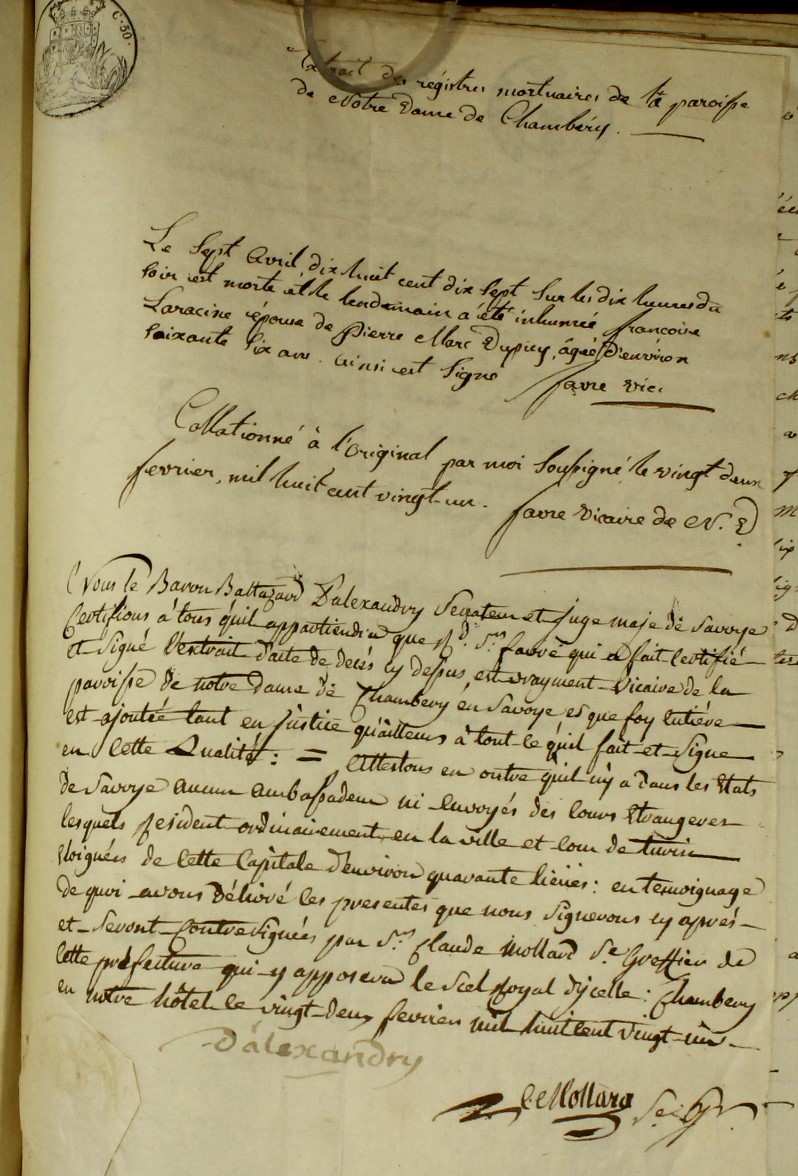 C. 50.
Extrait des régistres mortuaires de la paroisse
de Notre Dame de Chambéry.
Le sept avril dix huit cent dix sept sur les dix heures du
soir est morte et le lendemain a été inhumée françoise
Laracine épouse de Pierre Marc Dupuy, âgée d'environ
soixante six ans. ainsi est signé favre vic.
Collationné à l'original par moi soussigné le vingt deux
fevrier, mil huit cent vingt-un. favre vicaire de N. D
Nous le Baron Baltazard D'alexandry Senateur et juge maje de Savoye
Certifions à tous qu'il appartiendra que Rd. Sr. favre qui a fait Certifié
et signé l'extrait d'acte de decés cy dessus, est vrayment vicaire de la
paroisse de notre dame de Chambery en Savoye, et que foy entiére
est ajoutée tant en justice qu'ailleurs à tout ce qu'il fait et signe
en Cette Qualité: = Attestons en outre qu'il n'y a dans les Etats
de Savoye aucun ambassadeur ni envoyés des Cours Etrangeres
lesquels resident ordinairement en la ville et Cour de turin
Eloignées de Cette Capitale d'environ quarante lieües: en temoignage
de quoi avons Délivré les presentes que nous signerons cy aprés
et seront Contresignées par Sr. Claude Mollard Se. Greffier de
Cette préfecture qui y apposera le scel Royal d'jcelle: Chambery
en notre hôtel le vingt-deux fevrier mil huit cent vingt-un
D'alexandry
Ce Mollard Se. Gr.